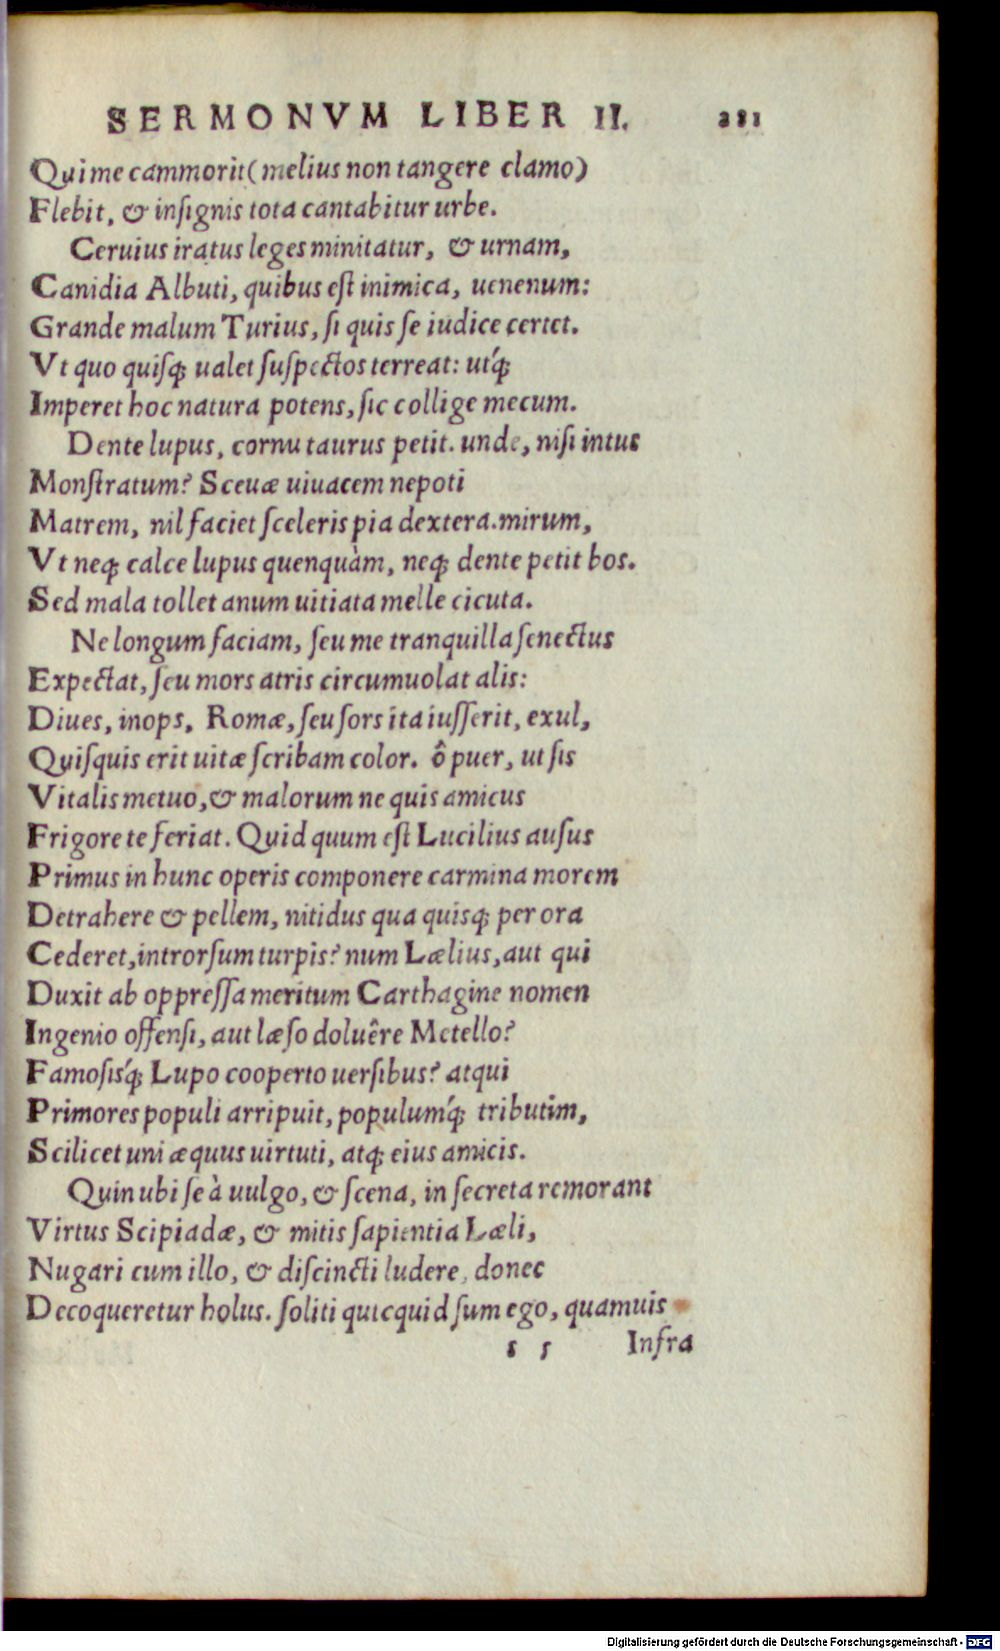 SERMONVM LIBER II. 281
Qui me cammorit (melius non tangere clamo)
Flebit, & inſignis tota cantabitur urbe.
Ceruius iratus leges minitatur, & urnam,
Canidia Albuti, quibus eſt inimica, uenenum:
Grande malum Turius, ſi quis ſe iudice certet.
Vt quo quiſq; ualet ſuſpectos terreat: utq́;
Imperet hoc natura potens, ſic collige mecum.
Dente lupus, cornu taurus petit. unde, niſi intus
Monſtratum? Sceuæ uiuacem nepoti
Matrem, nil faciet ſceleris pia dextera. mirum,
Vt neq; calce lupus quenquàm, neq; dente petit bos.
Sed mala tollet anum uitiata melle cicuta.
Ne longum faciam, ſeu me tranquilla ſenectus
Expectat, ſeu mors atris circumuolat alis:
Diues, inops, Romæ, ſeu ſors ita iuſſerit, exul,
Quiſquis erit uitæ ſcribam color. ô puer, ut ſis
Vitalis metuo, & malorum ne quis amicus
Frigore te feriat. Quid quum eſt Lucilius auſus
Primus in hunc operis componere carmina morem
Detrahere & pellem, nitidus qua quisq; per ora
Cederet, introrſum turpis? num Lælius, aut qui
Duxit ab oppreſſa meritum Carthagine nomen
Ingenio offenſi, aut læſo doluêre Metello?
Famoſisq́; Lupo cooperto uerſibus? atqui
Primores populi arripuit, populumq́; tributim,
Scilicet uni æquus uirtuti, atq; eius amicis.
Quin ubi ſe à uulgo, & ſcena, in ſecreta remorant
Virtus Scipiadæ, & mitis ſapientia Læli,
Nugari cum illo, & diſcincti ludere, donec
Decoqueretur holus. ſoliti quicquid ſum ego, quamuis
s 5 Infra
Digitalisierung gefördert durch die Deutsche Forschungsgemeinschaft - DFG